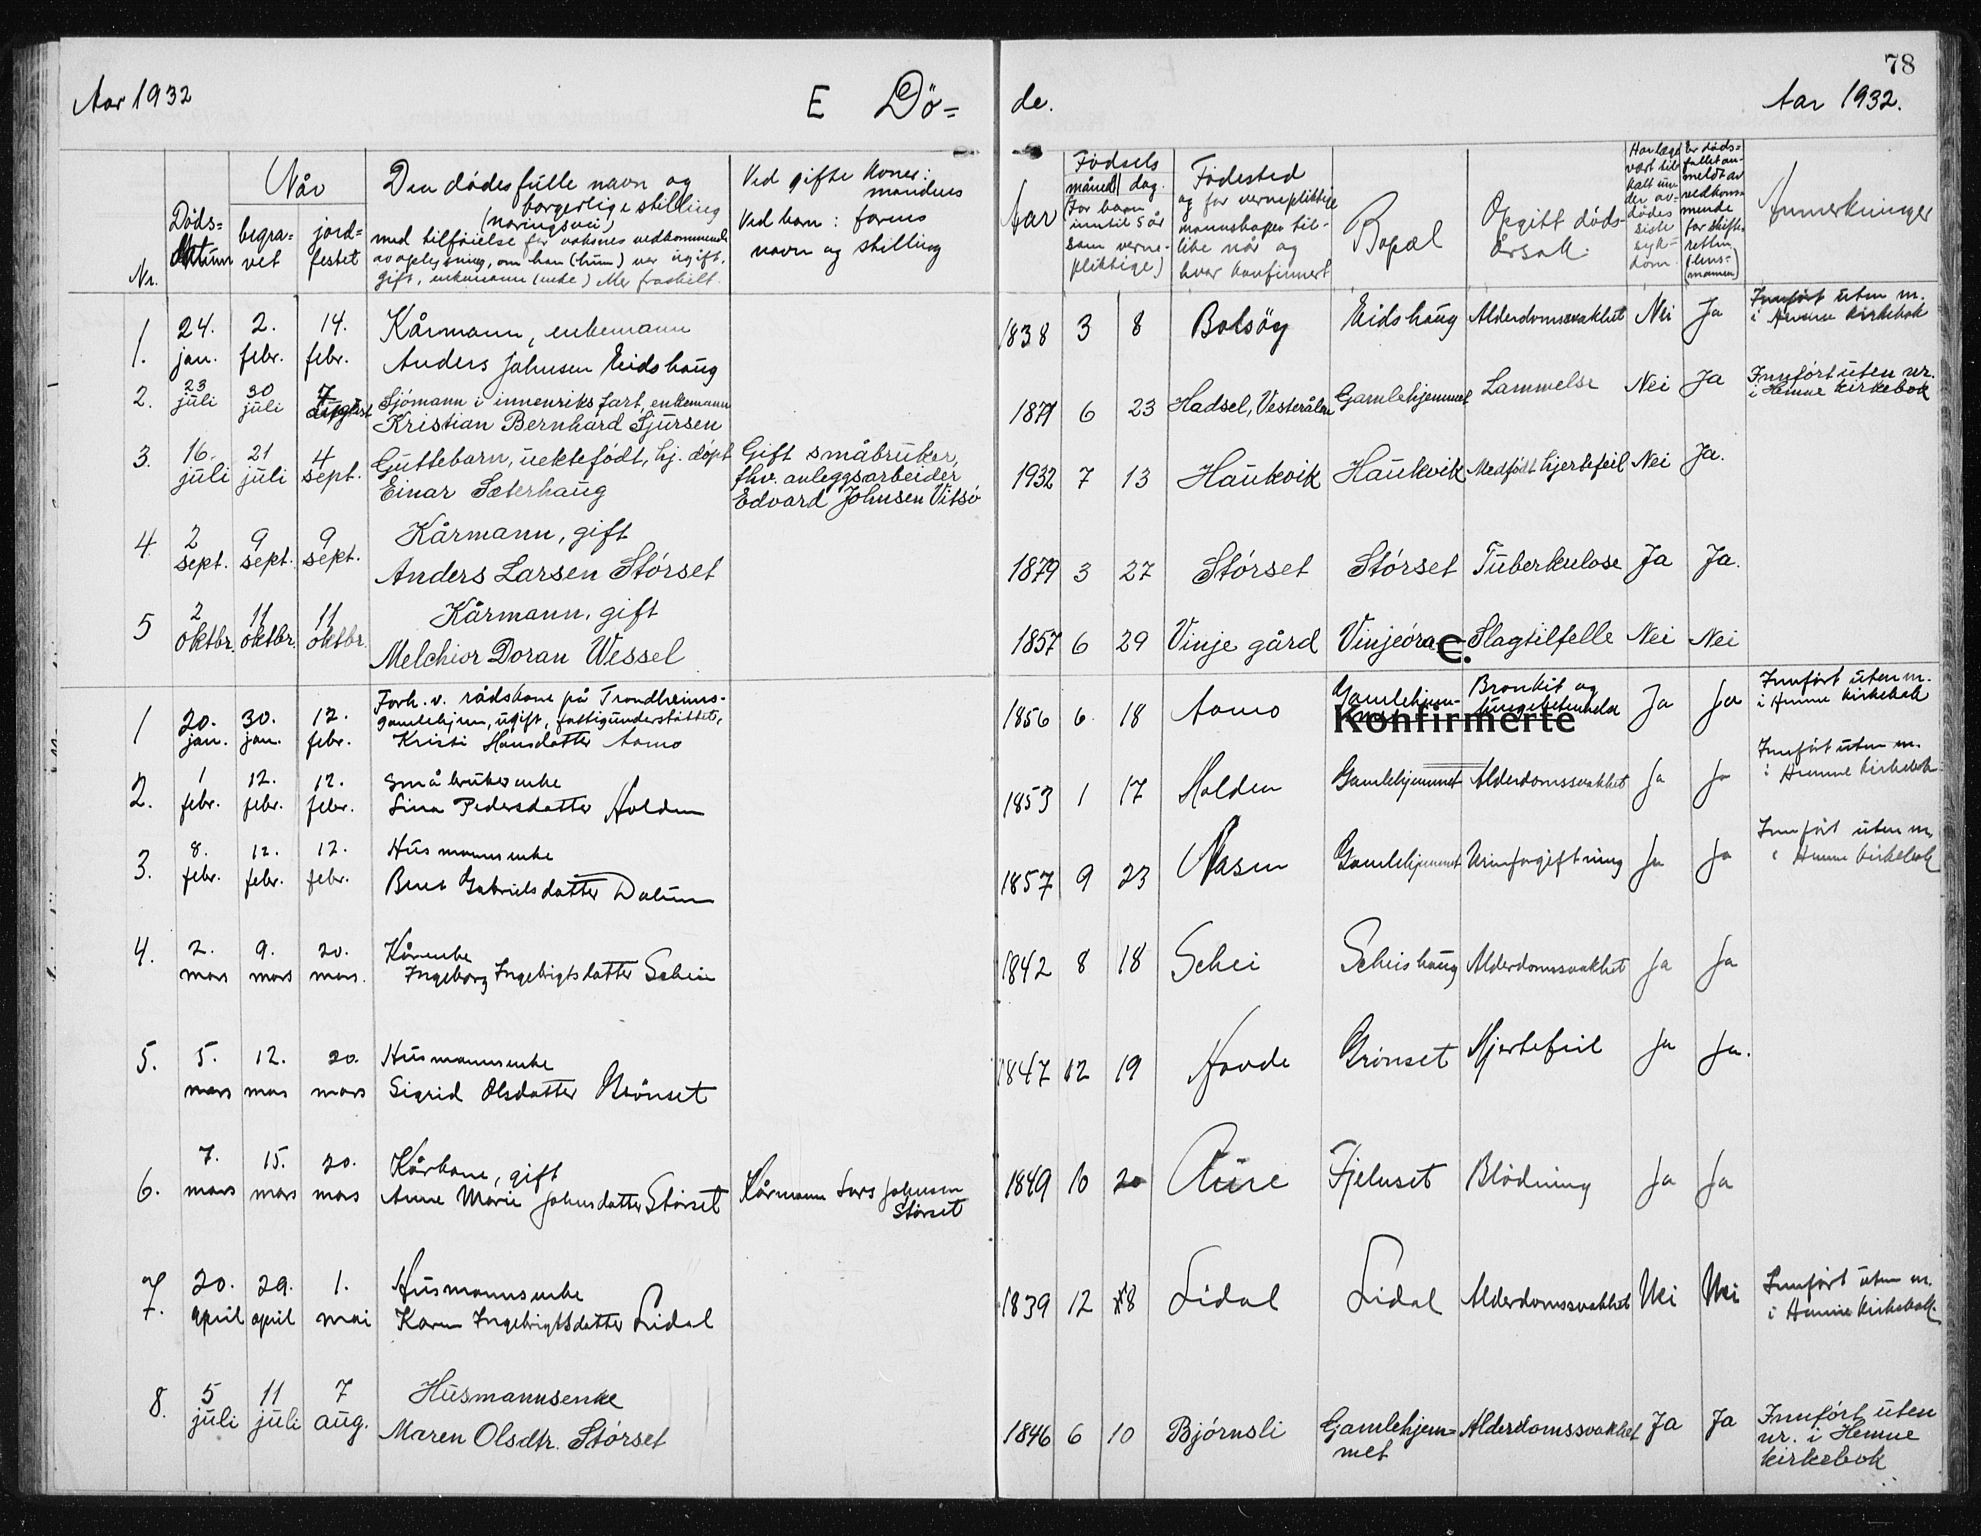 78
Aar 1932 E Dö= de. Aar 1932.
Nr.
Döds=
datum
Når
begra=
vet
jord=
festet
Den dödes fulle navn og
borgerlige stilling
(næringsvei)
med tilföielse for voksnes vedkommende
av oplysning, om han (hun) var ugift,
gift, enkemann (enke) eller fraskilt.
Ved gifte koner:
mandens
Ved barn: farens
navn og stilling
Aar
Födsels
måned dag.
For barn
inntil 5 år
samt verne-
pliktige)
Födested
og for vernepliktige
mannskaper til-
like når og
hvor konfirmert
Bopæl
Opgitt döds-
årsak.
Har læge
vært til-
kalt un-
der av-
dödes
siste
syk=
dom
Er döds=
fallet an-
meldt av
vedkom=
mende
for skifte-
retten
(lens=
mannen)
Anmerkninger
1. 24. jan. 2. febr. 14. febr. Kårmann, enkemann
Anders Johnsen Eidshaug
1838 3 8 Bolsöy Eidshaug Alderdomssvakhet Nei Ja Innfört uten nr.
i Hemne kirkebok
2. 23 juli 30 juli 7 august Sjömann i innenriks fart, enkemann
Kristian Bernhard Sjursen
1871 6 23 Hadsel, Vesterålen Gamlehjemmet Lammelse Nei Ja Innfört uten nr.
i Hemne kirkebok
3. 16. juli 21 juli 4 sept. Guttebarn, uektefödt, hj. döpt
Einar Sæterhaug
Gift småbruker,
fhv. anleggsarbeider
Edvard Johnsen Vitsö
1932 7 13 Haukvik Haukvik Medfödt hjertefeil Nei Ja.
4. 2 sept. 9 sept. 9 sept. Kårmann, gift
Anders Larsen Störset
1879 3 27 Störset Störset Tuberkulose Ja Ja.
5 2 oktbr. 11 oktbr. 11 oktbr. Kårmann, gift
Melchior Doran Wessel
1857 6 29 Vinje gård Vinjeöra Slagtilfelle Nei Nei
e.
Konfirmerte
1 20. jan. 30. jan. 12. febr. Forh. v. rådskone på Trondheims-
gamlehjem, ugift, fattigunderstöttet,
Kristi Hansdatter Aomo
1856 6. 18 Aomo Gamlehjem-
Bronkit og
lungebetendelse Ja Ja Innfört uten nr.
i Hemne kirkebok
2. 1 febr. 12. febr. 12. febr. Småbrukerenke
Lina Pedersdatter Holden
1853 1 17 Holden Gamlehjemmet Alderdomssvakhet Ja Ja Innfört uten nr.
i Hemne kirkebok
3. 8. febr. 12. febr. 12. febr. Husmannsenke
Beret Gabrielsdatter Dalum
1857 9 23 Nasen Gamlehjemmet Urinforgiftning Ja Ja Innfört uten nr.
i Hemne kirkebok
4. 2. mars 9. mars 20. mars. Kårenke
Ingeborg Ingebrigtsdatter Schei
1842 8 18 Schei Scheishaug Alderdomssvakhet Ja Ja
5. 5. mars 12. mars 20. mars Husmannsenke
Sigrid Olsdatter Grönset
1847 12 19 Hovde Grönset Hjertefeil Ja Ja.
6. 7. mars 15. mars 20. mars Kårkone, gift
Anne Marie Johnsdatter Störset
Kårmann Lars Johnsen
Störset
1849 10 20 Aure Fjelnset Blödning Ja Ja
7. 20. april 29. april 1. mai Husmannsenke
Karen Ingebrigtsdatter Lidal
1839 12 8 Lidal Lidal Alderdomssvakhet Nei Nei Innfört uten nr.
i Hemne kirkebok.
8. 5 juli 11 juli 7 aug. Husmannsenke
Maren Olsdtr. Störset
1846 6 10 Björnsli Gamlehjem=
met
Alderdomssvakhet Ja Ja Innfört uten
nr. i Hemne
kirkebok